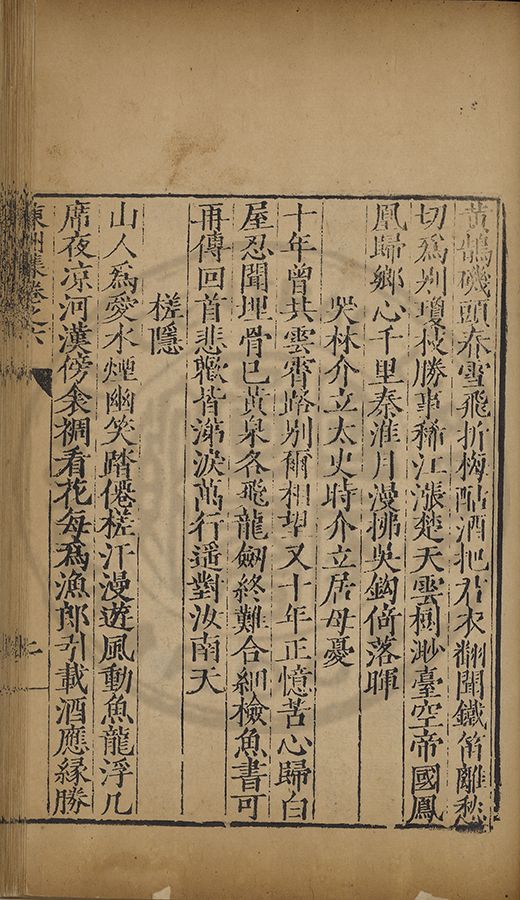 黃鶴磯頭春雪飛折梅酤酒把君衣翻聞鐵笛離愁
切爲别瓊枝勝事稀江漲楚天雲樹渺臺空帝國鳳
凰歸鄉心千里秦淮月漫拂吳鈎倚落暉
哭林介立太史時介立居母憂
十年曾共雲霄路别爾相望又十年正憶苦心歸白
屋忍聞埋骨已黃泉各飛龍劒終難合細檢魚書可
再傳回首悲歡皆涕淚萬行遥對汝南天
槎隱
山人爲愛水煙幽笑踏僊槎汗漫遊風動魚龍浮几
席夜凉河漢傍衾裯看花每爲漁郎引載酒應緣勝
集卷之六